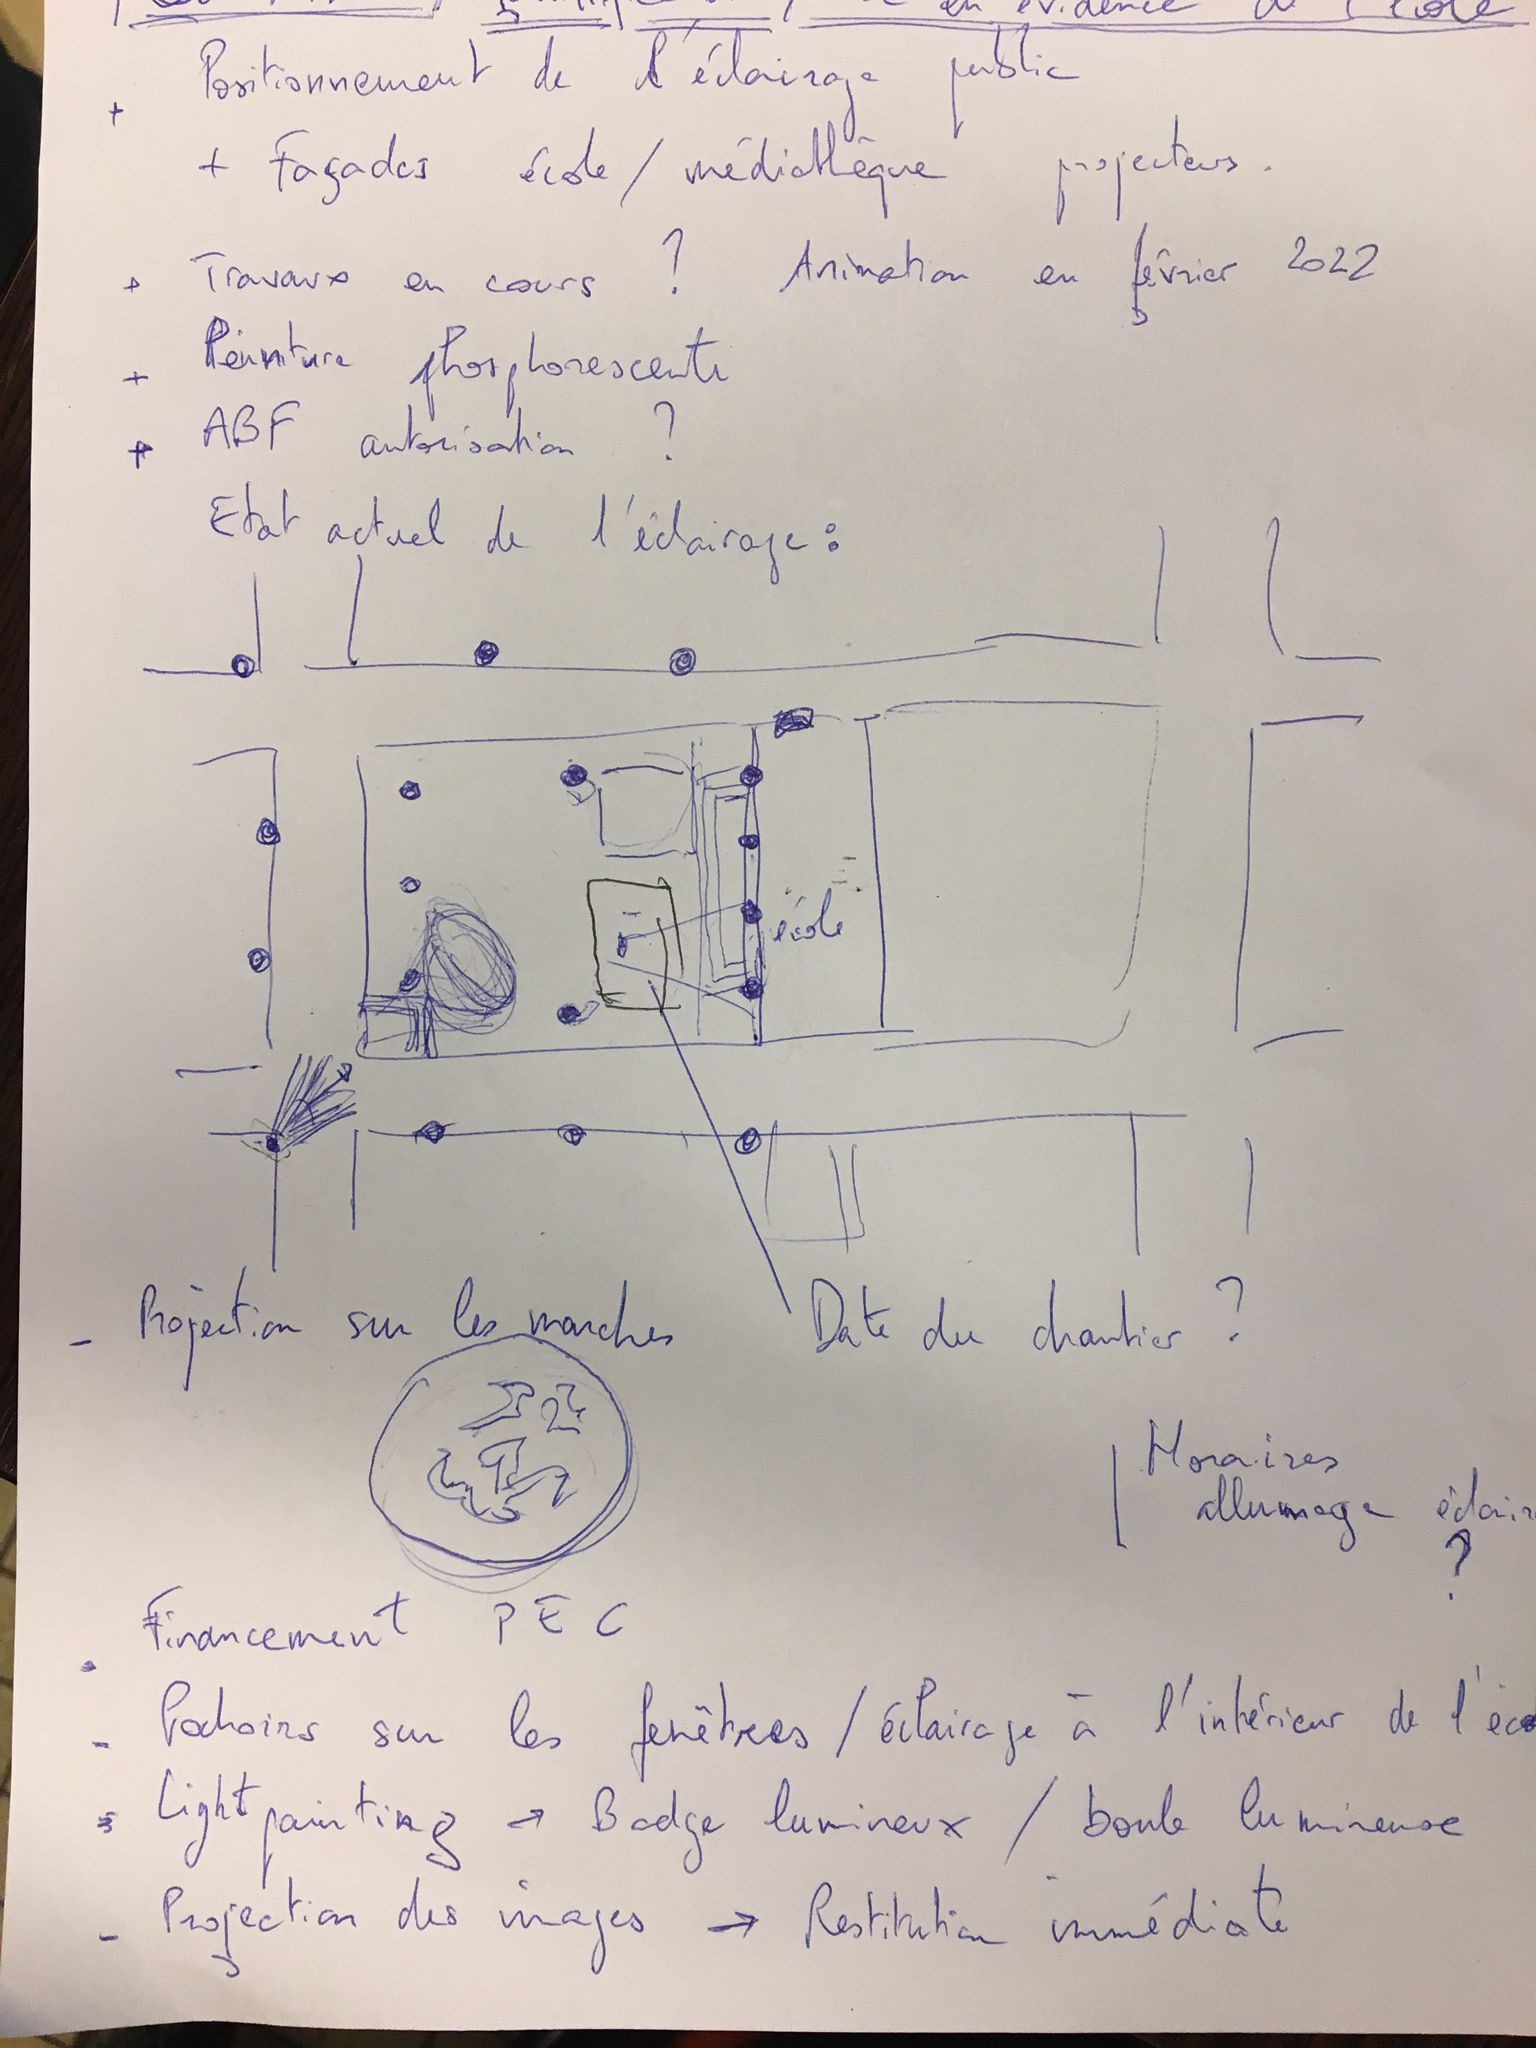 en évidence de l'école
+ Positionnement de l'éclairage public
+ Façades école / médiathèque projecteurs.
+ Travaux en cours ? Animation en février 2022
+ Peinture phosphorescente
+ ABF autorisation ?
Etat actuel de l'éclairage :
école
- Projection sur les marches Date du chantier ?
Horaires
allumage éclair
?
- Financement PEC
- Pochoirs sur les fenêtres / éclairage à l'intérieur de l'éco
- Lightpainting → Badge lumineux / boule lumineuse
- Projection des images → Restitution immédiate